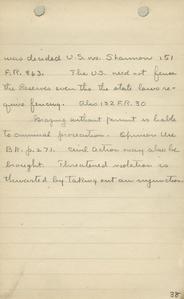 was decided U.S. vs. Shannon 151
F.R. 863. The U.S. need not fence
the Reserves even tho the state laws re-
quire fencing. Also 152 F.R. 30
Grazing without permit is liable
to criminal prosecution. Opinion Use
BK. p. 271. Civil Action may also be
brought. Threatened violation is
thwarted by taking out an injunction.
38